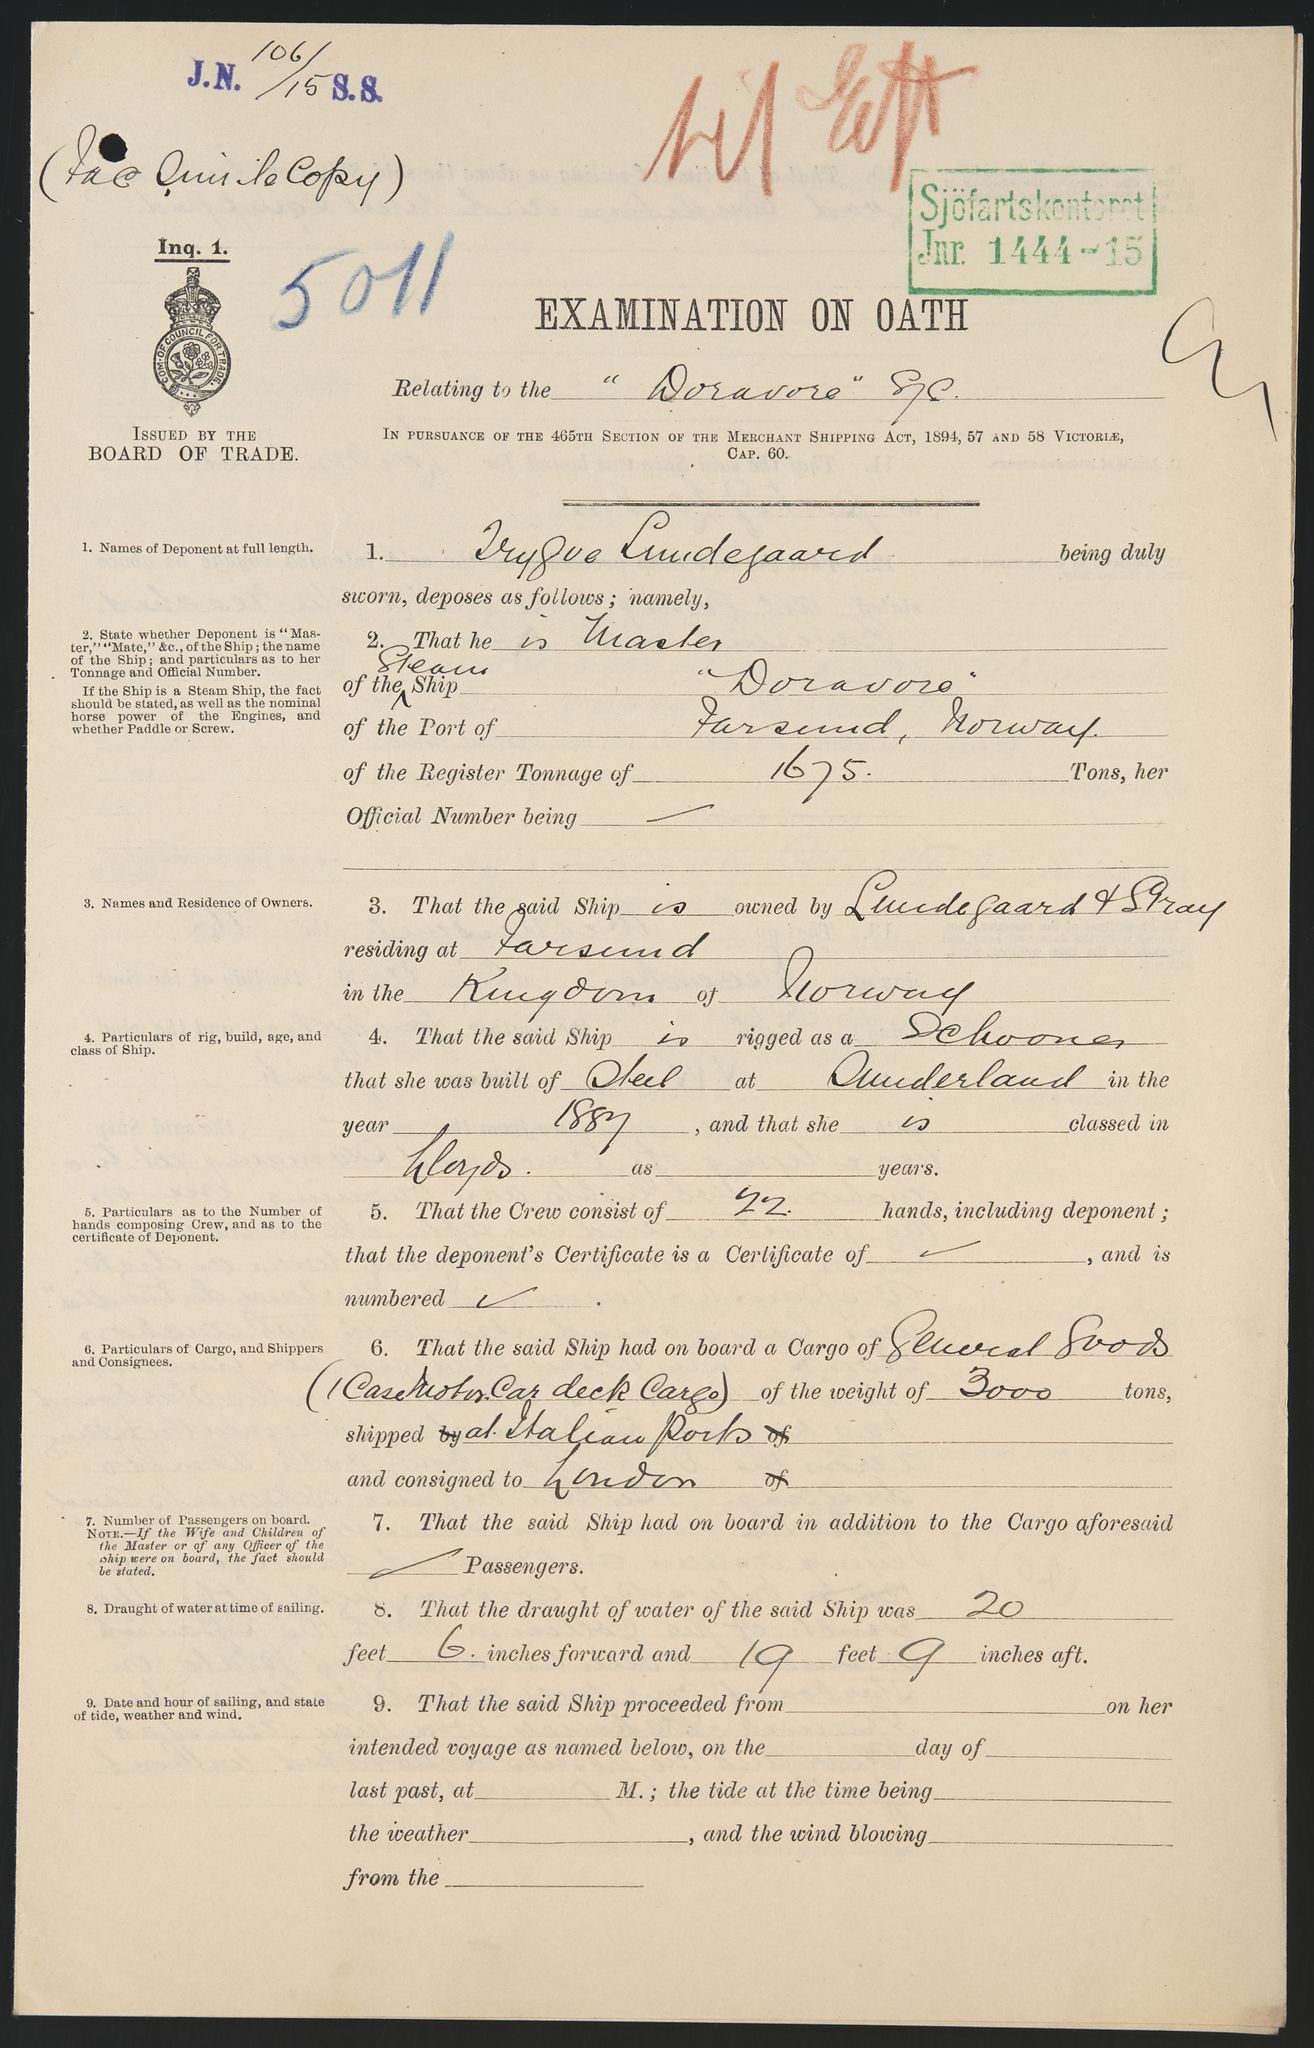 J.N. 106/15 S.S.
(Fac Simile Copy)
til
Sjöfartskontoret
Jnr. 1444-15
Inq. 1.
5011
COM. OF COUNCIL FOR TRADE.
ISSUED BY THE
BOARD OF TRADE.
EXAMINATION ON OATH
Relating to the "Doravore" S/S.
IN PURSUANCE OF THE 465TH SECTION OF THE MERCHANT SHIPPING ACT, 1894, 57 AND 58 VICTORIÆ,
CAP. 60.
1. Names of Deponent at full length.
1. Trygve Lundegaard being duly
sworn, deposes as follows; namely,
2. State whether Deponent is "Mas-
ter," "Mate," &c., of the Ship; the name
of the Ship; and particulars as to her
Tonnage and Official Number.
If the Ship is a Steam Ship, the fact
should be stated, as well as the nominal
horse power of the Engines, and
whether Paddle or Screw.
2. That he is Master
Steam
of the Ship "Doravore"
of the Port of Farsund, Norway.
of the Register Tonnage of 1675. Tons, her
Official Number being
3. Names and Residence of Owners.
3. That the said Ship is owned by Lundegaard & Stray
residing at Farsund
in the Kingdom of Norway
4. Particulars of rig, build, age, and
class of Ship.
4. That the said Ship is rigged as a Schooner
that she was built of Steel at Sunderland in the
year 1887, and that she is classed in
Lloyds. as years.
5. Particulars as to the Number of
hands composing Crew, and as to the
certificate of Deponent.
5. That the Crew consist of 22. hands, including deponent;
that the deponent's Certificate is a Certificate of , and is
numbered .
6. Particulars of Cargo, and Shippers
and Consignees.
6. That the said Ship had on board a Cargo of General Goods
(1 Case Motor Car deck Cargo) of the weight of 3000 tons,
shipped by at Italian Ports of
and consigned to London of
7. Number of Passengers on board.
NOTE.—If the Wife and Children of
the Master or of any Officer of the
ship were on board, the fact should
be stated.
7. That the said Ship had on board in addition to the Cargo aforesaid
Passengers.
8. Draught of water at time of sailing.
8. That the draught of water of the said Ship was 20
feet 6. inches forward and 19 feet 9 inches aft.
9. Date and hour of sailing, and state
of tide, weather and wind.
9. That the said Ship proceeded from on her
intended voyage as named below, on the day of
last past, at M.; the tide at the time being
the weather , and the wind blowing
from the